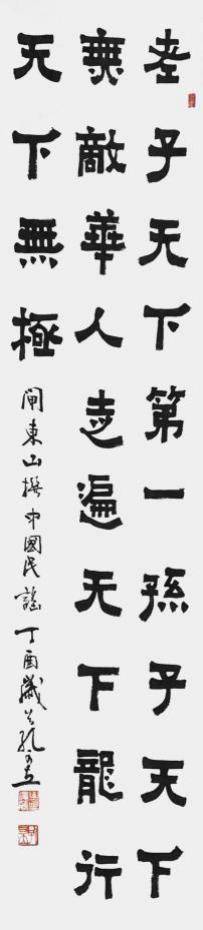 老子天下第一孫子天下
無敵華人走遍天下龍行
天下無極
閘東山撰中國民謠丁酉歲